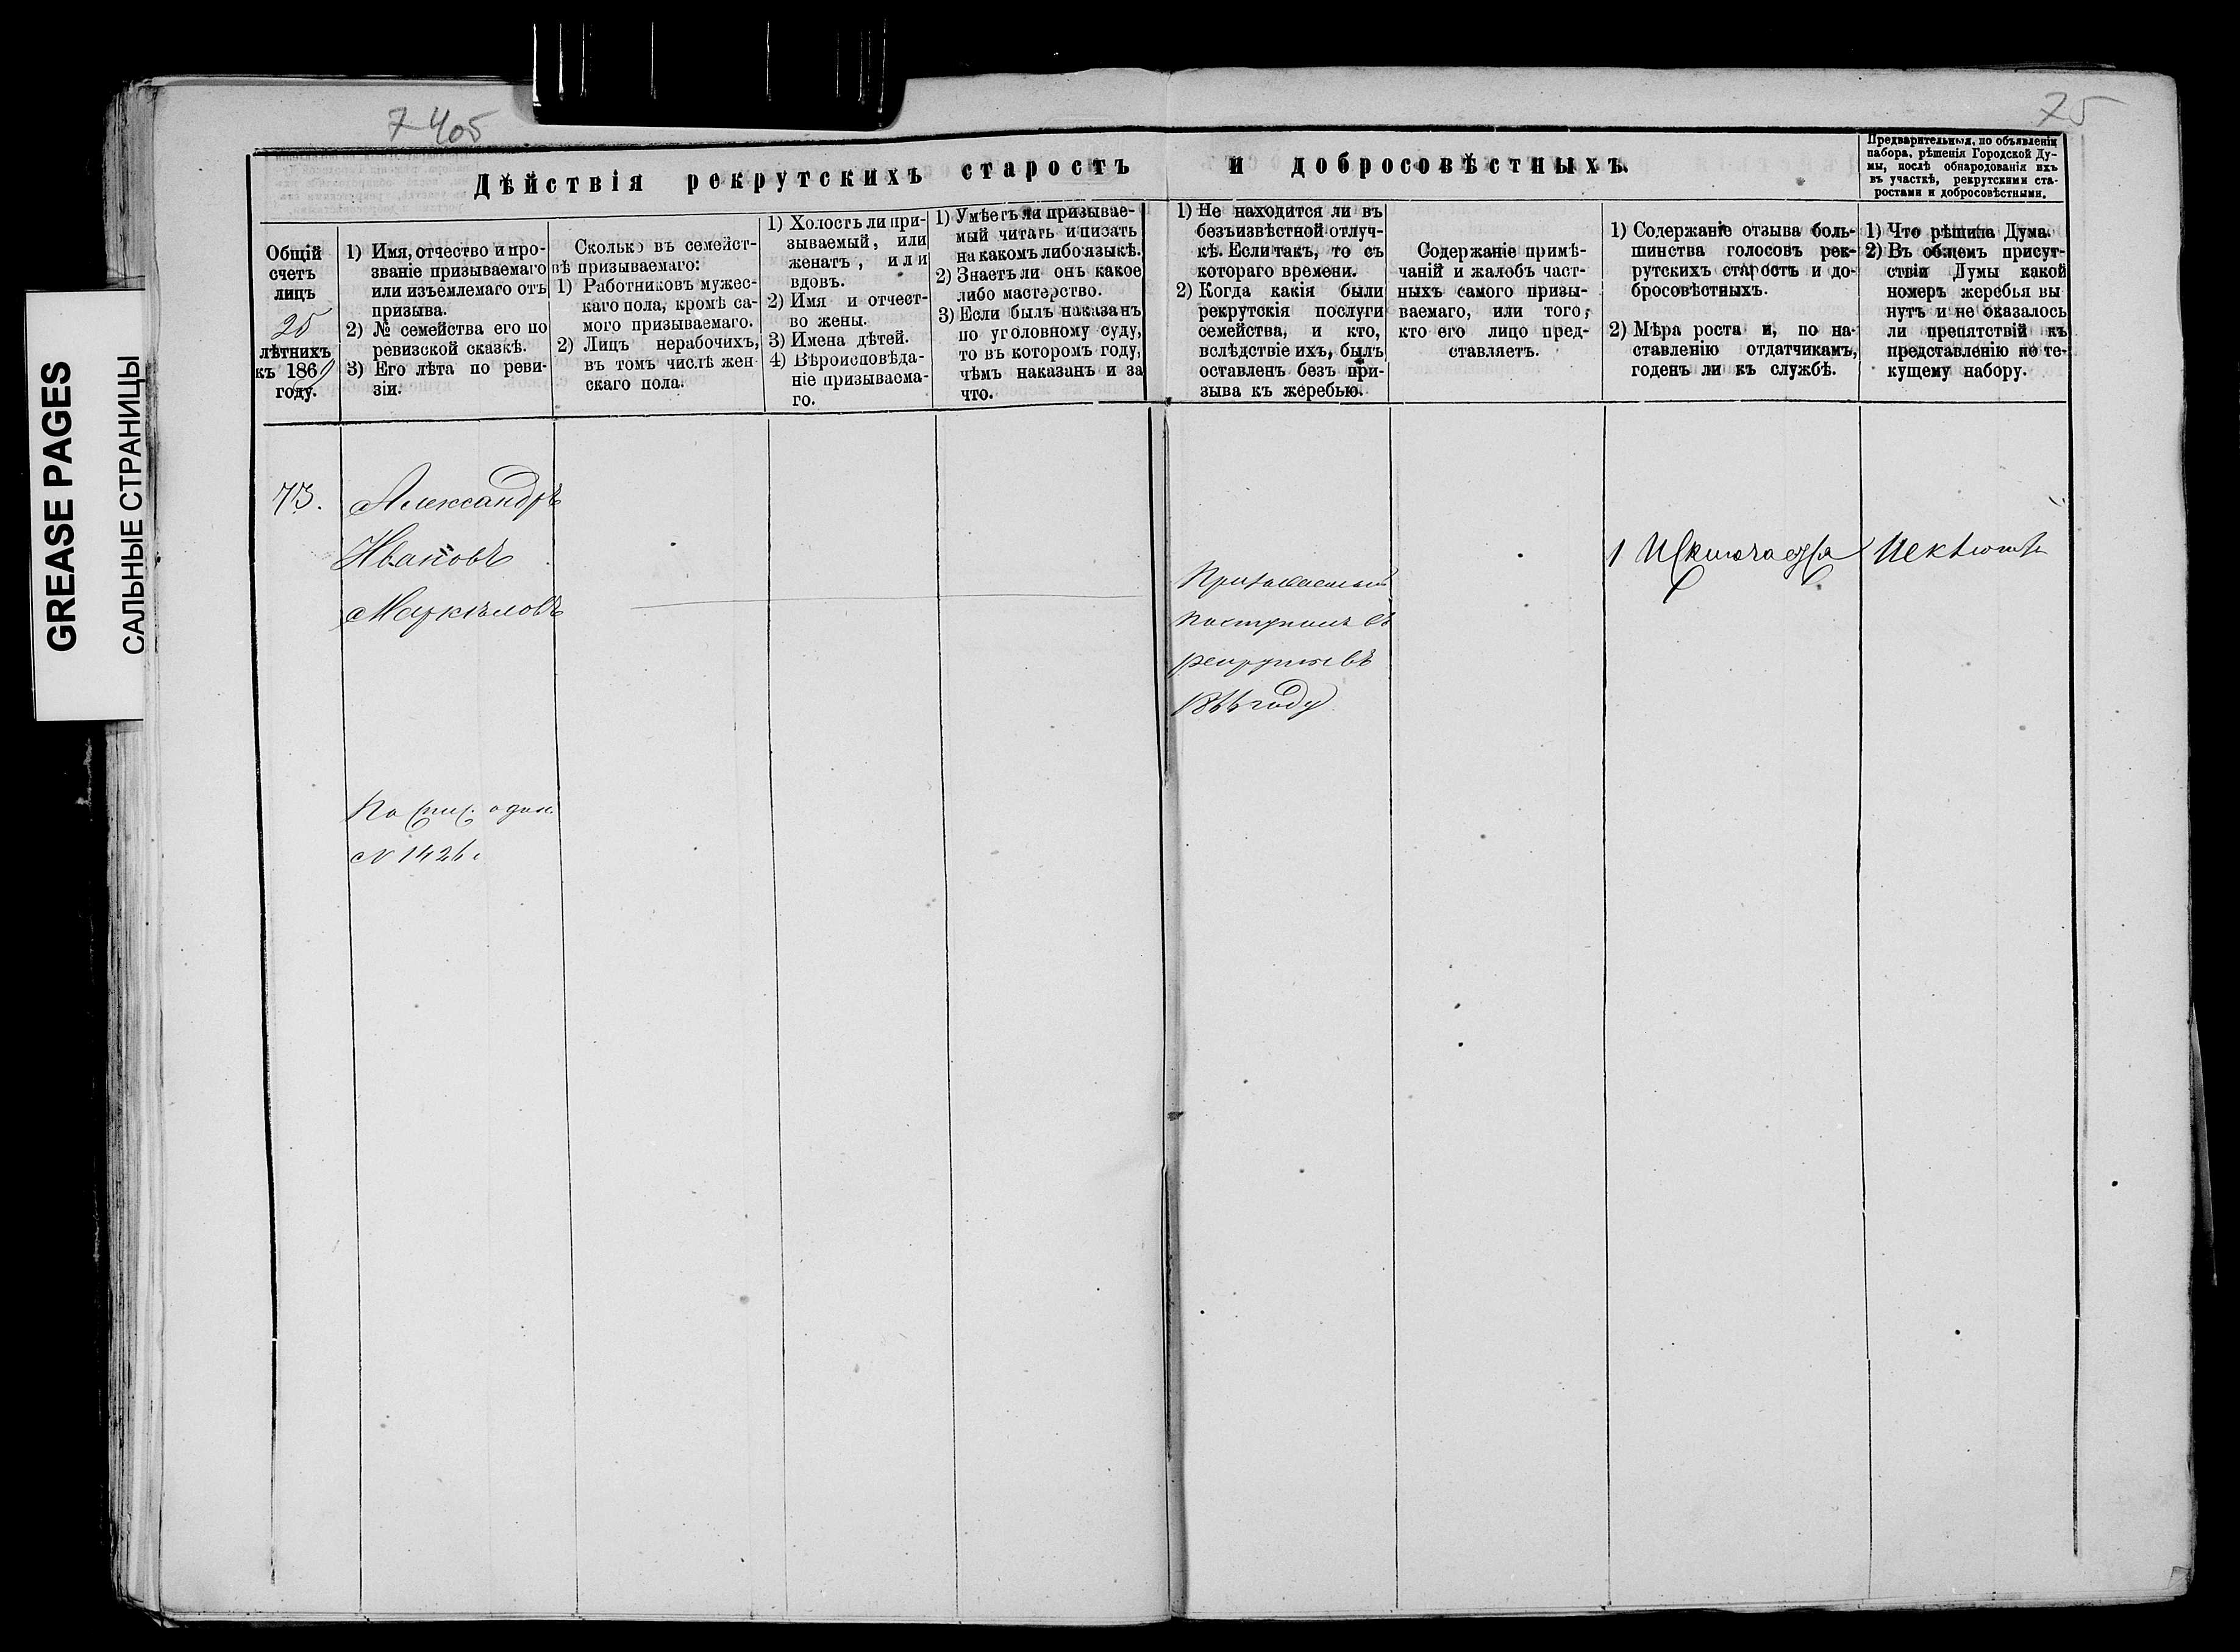 7405
75
GREASE PAGES
САЛЬНЫЕ СТРАНИЦЫ
Дѣйствія рекрутскихъ старостъ и добросовѣстныхъ.
Предварительныя, по объявленіи
набора, рѣшенія Городской Ду-
мы, послѣ обнародованія ихъ
въ участкѣ, рекрутскими ста-
ростами и добросовѣстными.
Общій
счетъ
лицъ
25
лѣтнихъ
къ 1869
году.
1) Имя, отчество и про-
званіе призываемаго
или изъемлемаго отъ
призыва.
2) № семейства его по
ревизской сказкѣ.
3) Его лѣта по реви-
зіи.
Сколько въ семейст-
вѣ призываемаго:
1) Работниковъ мужес-
каго пола, кромѣ са-
мого призываемаго.
2) Лицъ нерабочихъ,
въ томъ числѣ жен-
скаго пола.
1) Холостъ ли при-
зываемый, или
женатъ, или
вдовъ.
2) Имя и отчест-
во жены.
3) Имена дѣтей.
4) Вѣроисповѣда-
ніе призываема-
го.
1) Умѣетъ ли призывае-
мый читать и писать
на какомъ либо языкѣ.
2) Знаетъ ли онъ какое
либо мастерство.
3) Если былъ наказанъ
по уголовному суду,
то въ которомъ году,
чѣмъ наказанъ и за
что.
1) Не находится ли въ
безъизвѣстной отлуч-
кѣ. Если такъ, то съ
котораго времени.
2) Когда какія были
рекрутскія послуги
семейства, и кто,
вслѣдствіе ихъ, былъ
оставленъ безъ при-
зыва къ жеребью.
Содержаніе примѣ-
чаній и жалобъ част-
ныхъ самого призы-
ваемаго, или того,
кто его лицо пред-
ставляетъ.
1) Содержаніе отзыва боль-
шинства голосовъ рек-
рутскихъ старостъ и до-
бросовѣстныхъ.
2) Мѣра роста и, по на-
ставленію отдатчикамъ,
годенъ ли къ службѣ.
1) Что рѣшила Дума.
2) Въ общемъ присут-
ствіи Думы какой
номеръ жеребья вы
нутъ и не оказалось
ли препятствій къ
представленію по те-
кущему набору.
73.
Александръ
Ивановъ
Маркѣловъ
По спис. один.
№ 1426
Призываемый
поступилъ въ
рекруты въ
1866 году
1 Исключается
Исключить